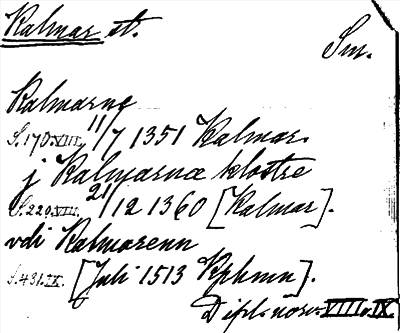 Kalmar st.
Sm.
Kalmarne
S.170.VIII. 11/7 1351 Kalmar.
j Kalmarnæ klostre
S.229.VIII. 21/12 1360 [Kalmar].
vdi Kalmarenn
S.431.IX. [Juli 1513 Kphmn].
Dipl. norv. VIII o. IX.